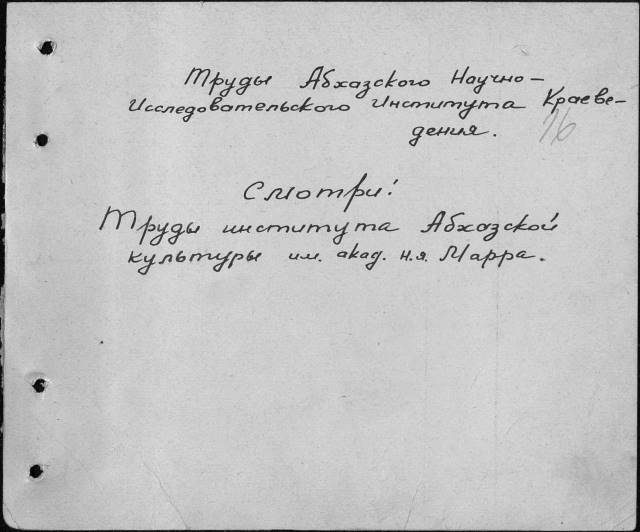 Труды Абхазского Научно-
Исследовательского Института Краеве-
дения.
76
Смотри!
Труды института Абхазской
культуры им. акад. Н.Я. Марра.